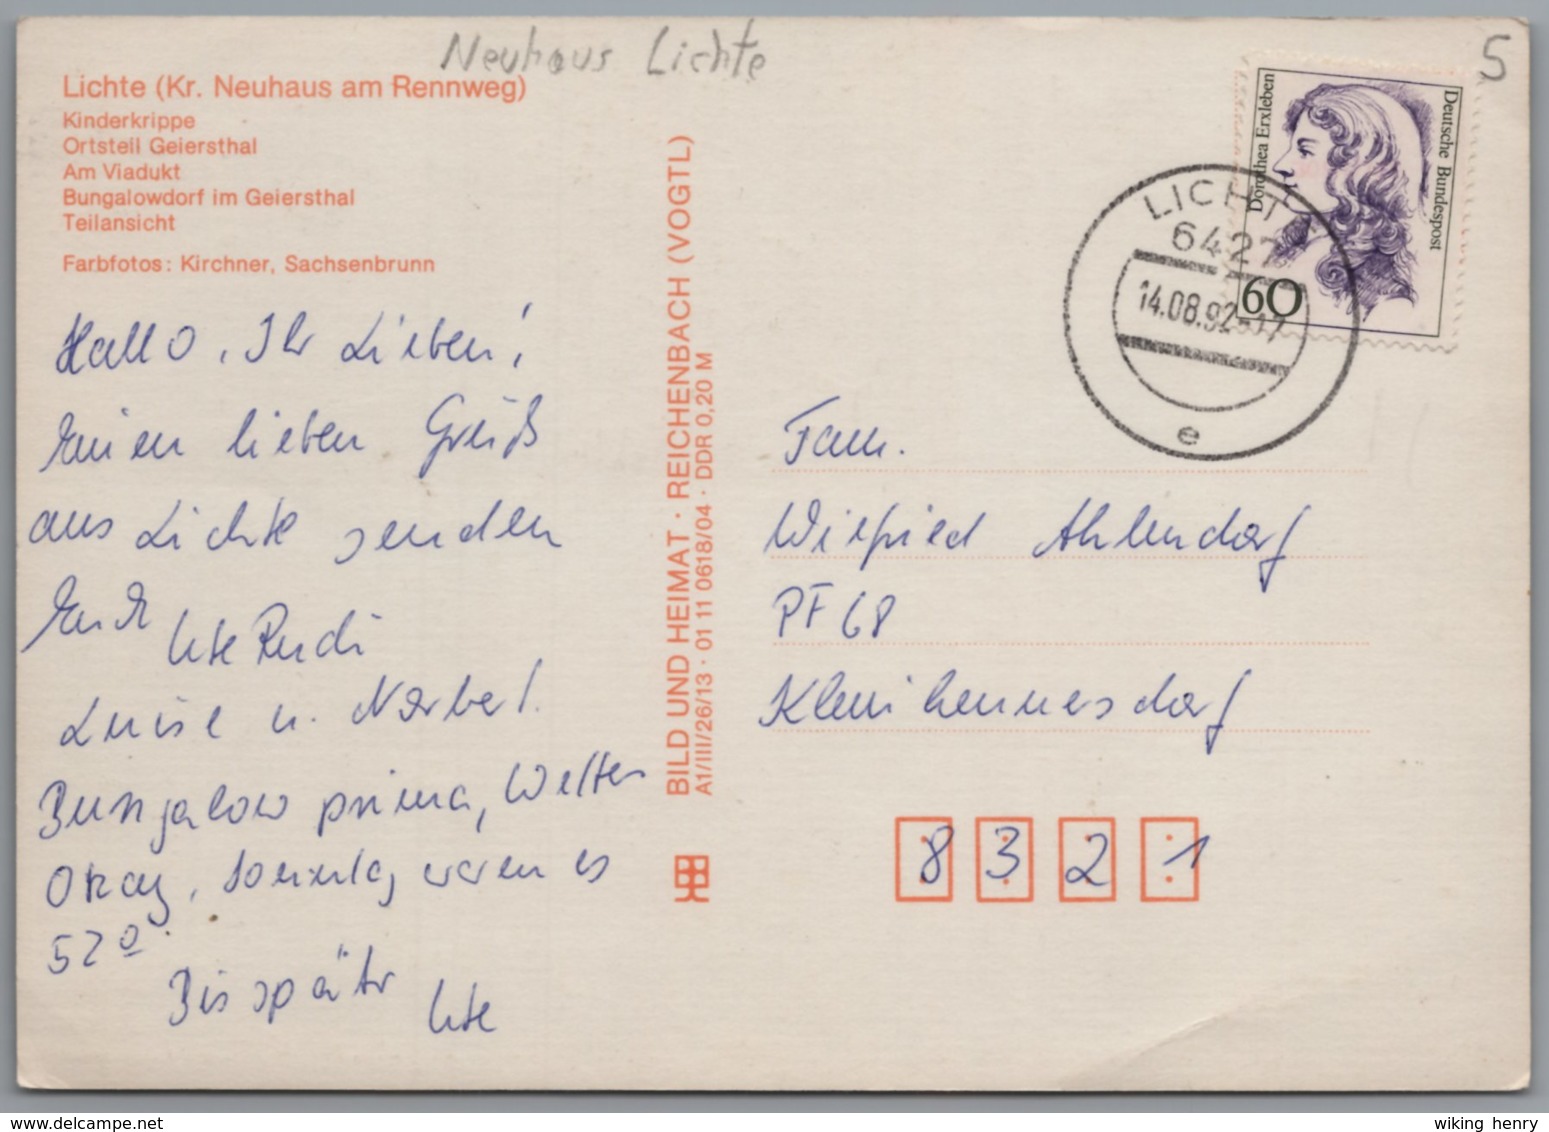 Neuhaus Lichte
5
Lichte (Kr. Neuhaus am Rennweg)
Kinderkrippe
Ortsteil Geiersthal
Am Viadukt
Bungalowdorf im Geiersthal
Teilansicht
Farbfotos: Kirchner, Sachsenbrunn
Hallo, Ihr Lieben!
Einen lieben Gruß
aus Lichte senden
Euch
Ute Rudi
Luise u. Norbert.
Bungalow prima, Wetter
Okay, Sonntag waren es
52°
Bis später
Ute
BILD UND HEIMAT · REICHENBACH (VOGTL)
A1/III/26/13 · 01 11 0618/04 · DDR 0,20 M
Dorothea Erxleben
Deutsche Bundespost
60
LICHTE
6427
14.08.92-17
e
Fam.
Wilfried Ahlendorf
PF 68
Kleinhennersdorf
8 3 2 1
wiking henry